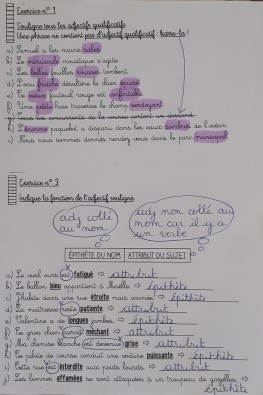 Exercice n° 1
Souligne tous les adjectifs qualificatifs.
Une phrase ne contient pas d'adjectif qualificatif : barre-la !
a) Samuel a les mains sales
b) Le minuscule moustique s'agite.
c) Les belles feuilles rousses tombent.
d) L'eau fraîche désaltère le chien
e) Ce vieux fauteuil rouge est confortable
f) Une petite haie traverse le champ verdoyant
g) Tous les concurrents de la course portent un dossard
h) L'énorme paquebot a disparu dans les eaux sombres de l'océan.
i) Nous nous sommes donnés rendez-vous dans le parc municipal
Exercice n° 3
Indique la fonction de l'adjectif souligné
adj collé au nom
adj non collé au nom car il y a un verbe
ÉPITHÈTE DU NOM ATTRIBUT DU SUJET
a) Le vieil ours est fatigué ⇒ attribut
b) Le ballon bleu appartient à ⇒ épithète
c) J'habite dans une rue étroite mais animée ⇒ épithète
d) La maîtresse reste patiente ⇒ attribut
e) Valentine a de longues jambes ⇒ épithète
f) Ce gros chien paraît méchant ⇒ attribut
g) Ma chemise blanche est devenue grise ⇒ attribut
h) Le pilote de course conduit une voiture puissante ⇒ épithète
i) Cette rue est interdite aux poids lourds ⇒ attribut
j) Les lionnes affamées se sont attaquées à un troupeau de gazelles ⇒ épithète